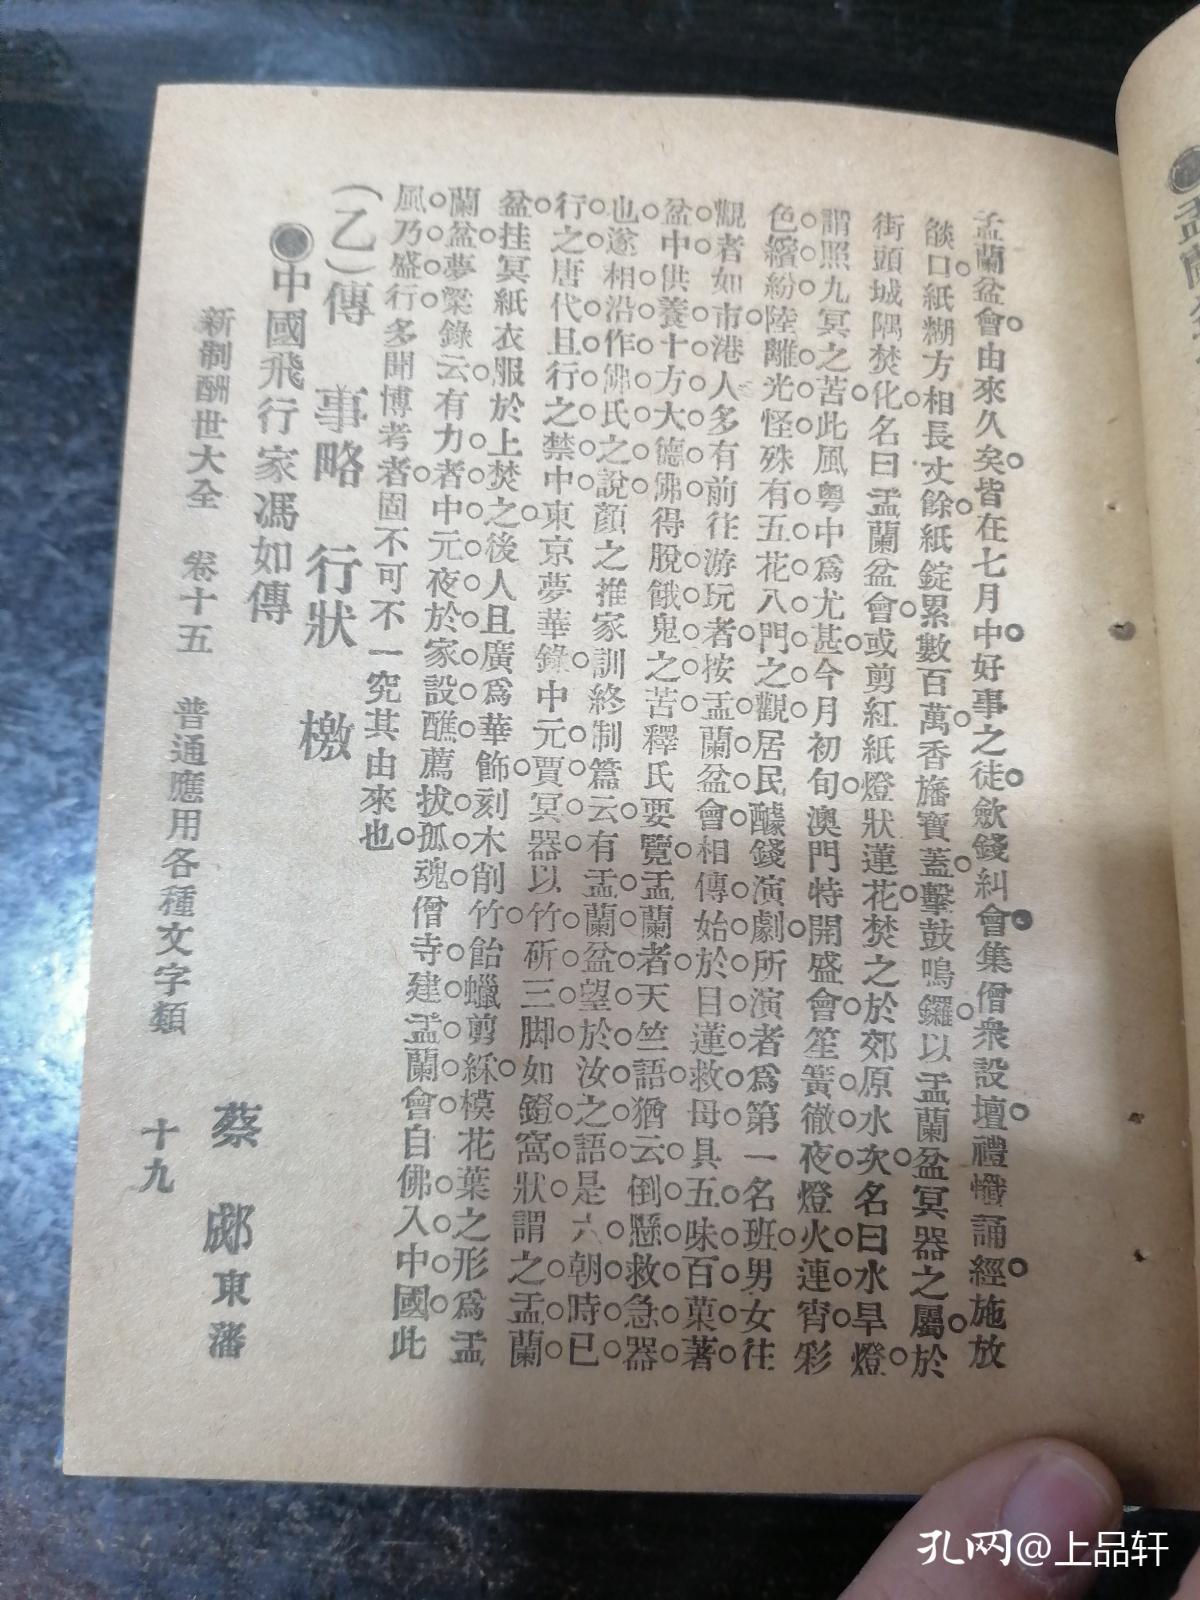 盂蘭盆會由來久矣皆在七月中好事之徒斂錢糾會集僧衆設壇禮懺誦經施放
燄口紙糊方相長丈餘紙錠累數百萬香旛寶蓋擊鼓鳴鑼以盂蘭盆冥器之屬於
街頭城隅焚化名曰盂蘭盆會或剪紅紙燈狀蓮花焚之於郊原水次名曰水旱燈
謂照九冥之苦此風粵中爲尤甚今月初旬澳門特開盛會笙簧徹夜燈火連宵彩
色繽紛陸離光怪殊有五花八門之觀居民醵錢演劇所演者爲第一名班男女往
觀者如市港人多有前往游玩者按盂蘭盆會相傳始於目蓮救母具五味百菓著
盆中供養十方大德佛得脫餓鬼之苦釋氏要覽盂蘭者天竺語猶云倒懸救急器
也遂相沿作佛氏之說顏之推家訓終制篇云有盂蘭盆望於汝之語是六朝時已
行之唐代且行之禁中東京夢華錄中元賈冥器以竹斫三脚如鐙窩狀謂之盂蘭
盆挂冥紙衣服於上焚之後人且廣爲華飾刻木削竹飴蠟剪綵模花葉之形爲盂
蘭盆夢粱錄云有力者中元夜於家設醮薦拔孤魂僧寺建盂蘭會自佛入中國此
風乃盛行多聞博考者固不可不一究其由來也
(乙)傳 事略 行狀 檄
中國飛行家馮如傳 蔡郕東藩
新制酬世大全 卷十五 普通應用各種文字類 十九
孔网@上品轩